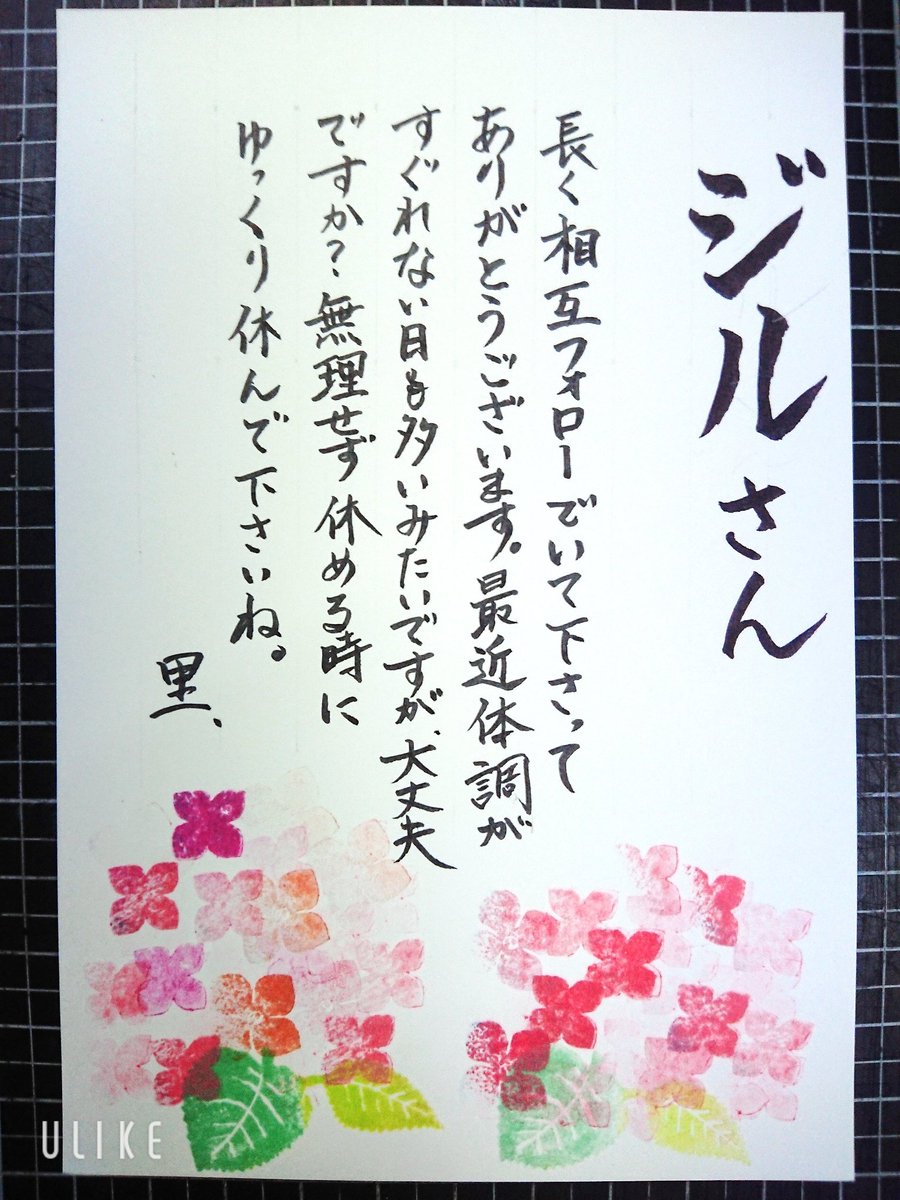 ジルさん
長く相互フォローでいて下さって
ありがとうございます。最近体調が
すぐれない日も多いみたいですが、大丈夫
ですか?無理せず休める時に
ゆっくり休んで下さいね。
里、
ULIKE